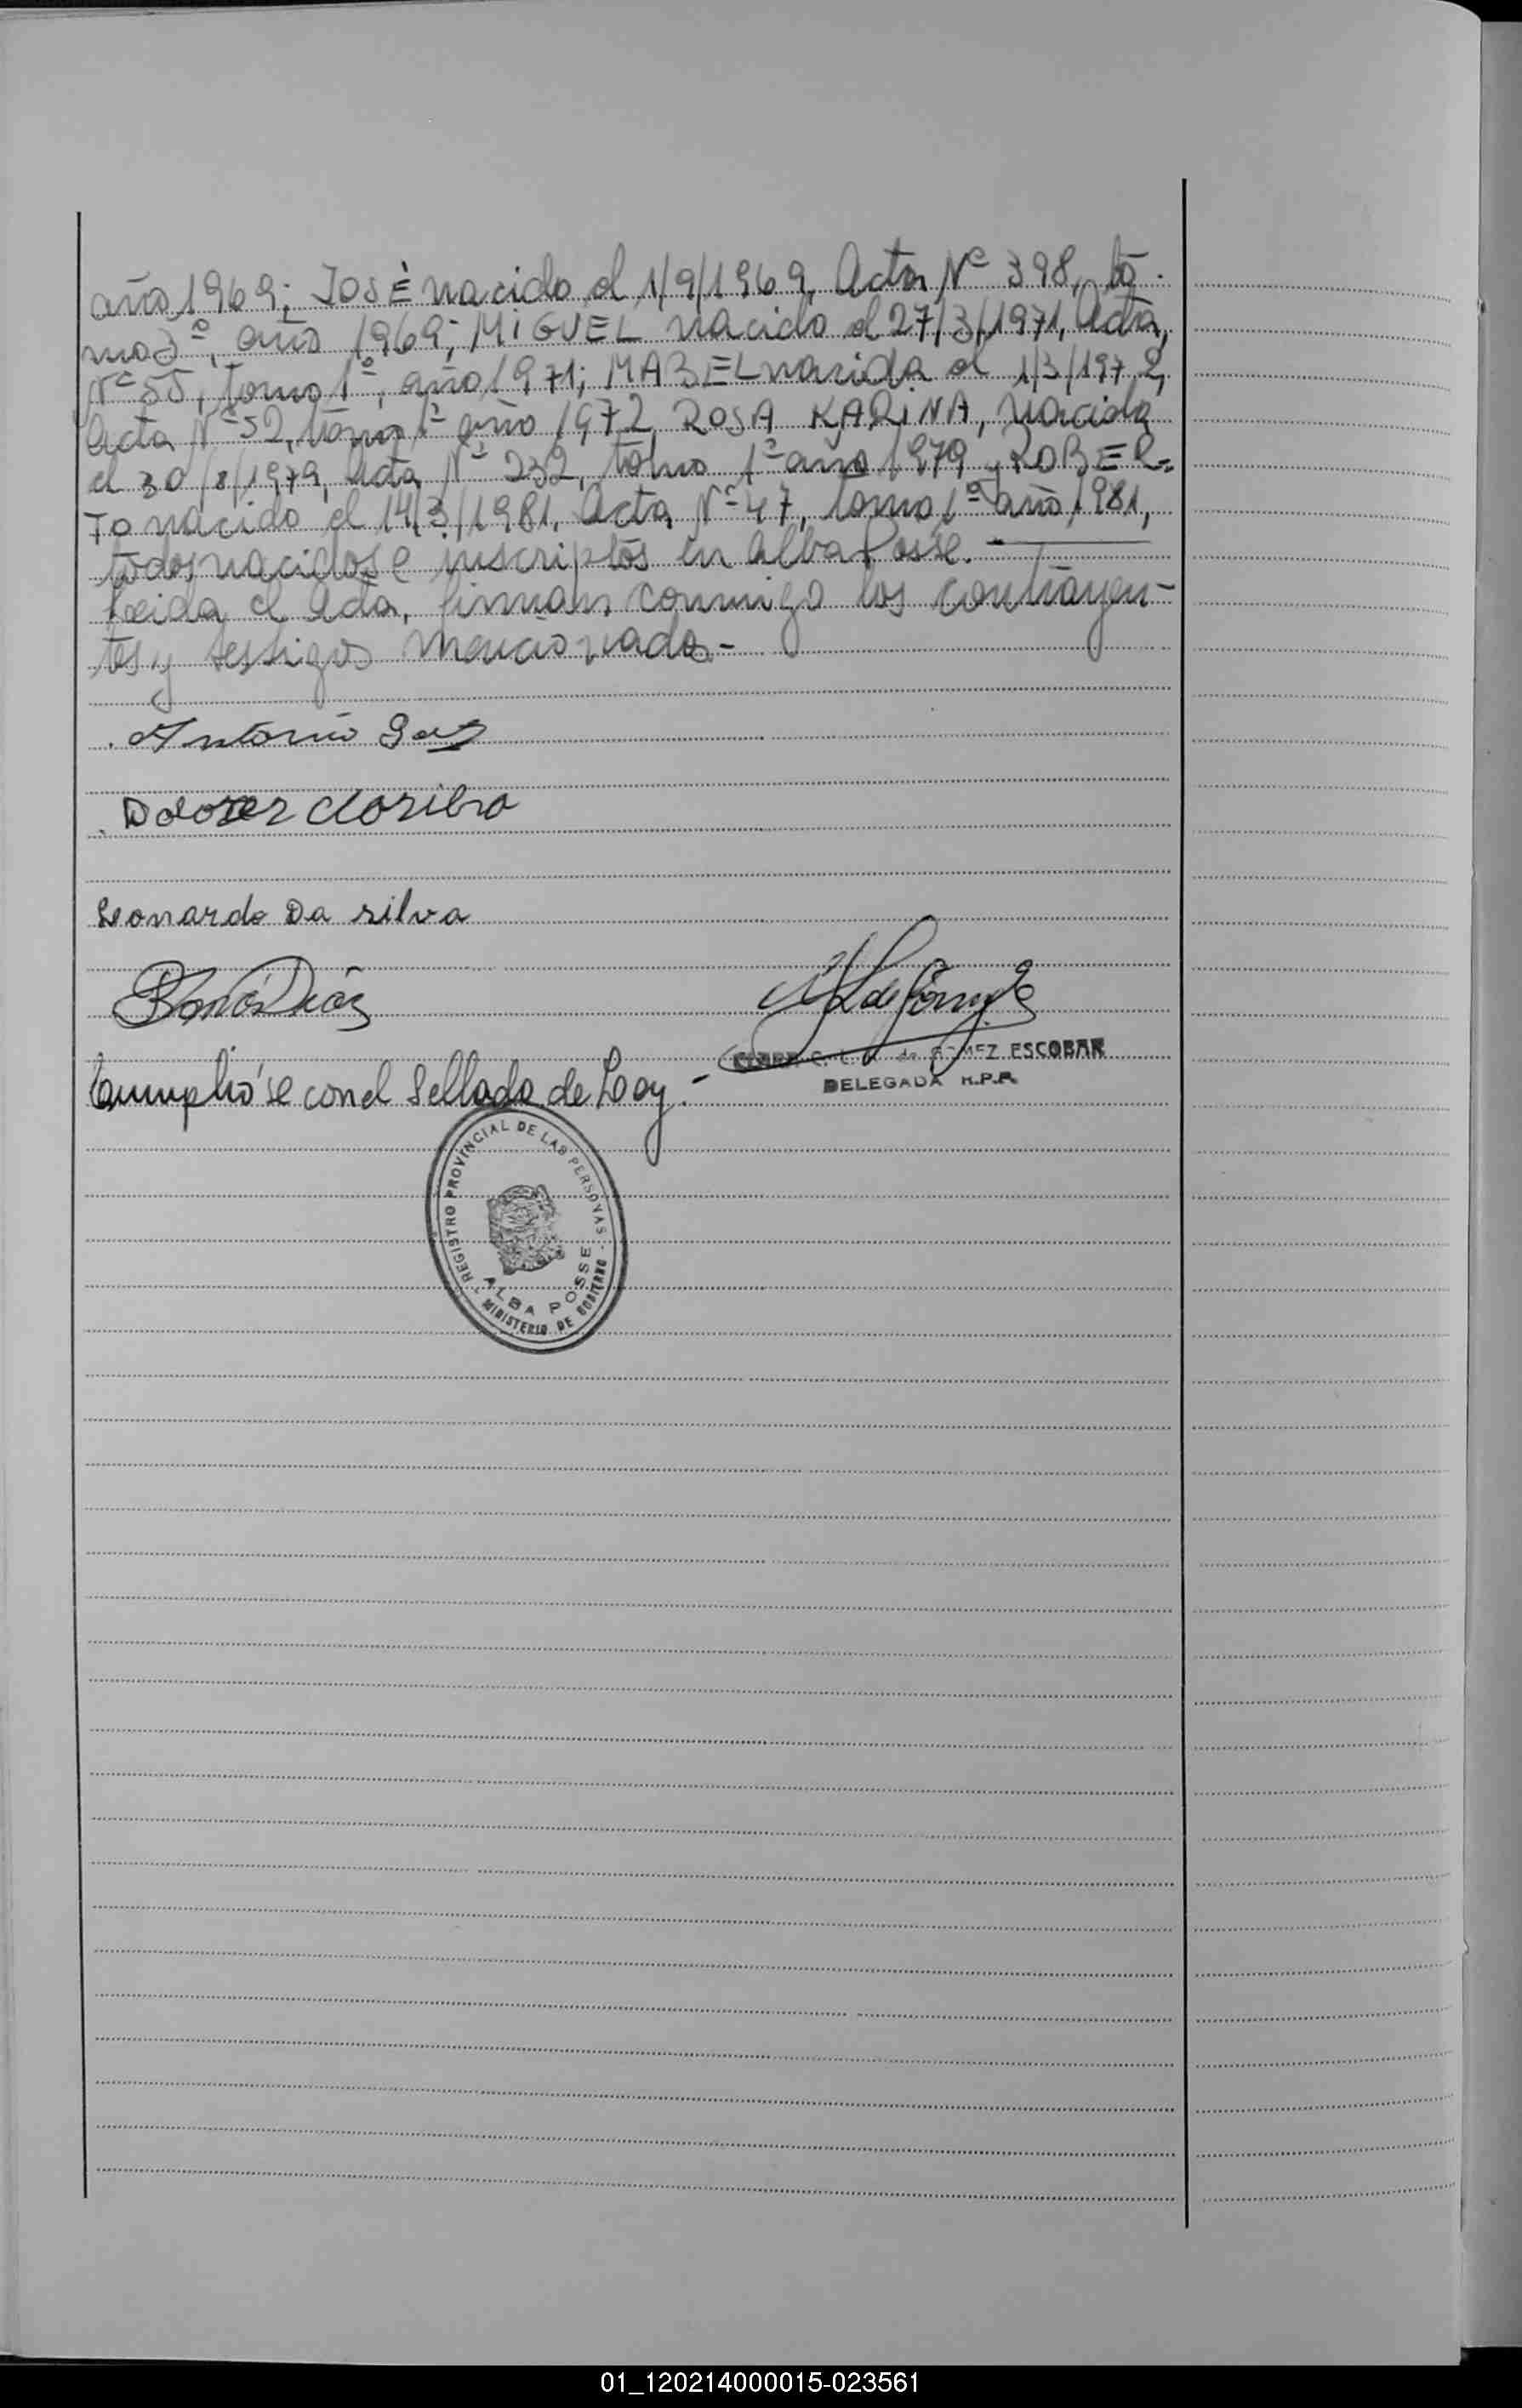 año 1969; JOSÉ nacido el 1/9/1969, Acta Nº 398, to-
mo 2º, año 1969; MIGUEL nacido el 27/3/1971, Acta,
Nº 55, tomo 1º, año 1971; MABEL nacida el 1/3/1972,
Acta Nº 52, tomo 1º año 1972, ROSA KARINA, nacida
el 30/8/1979, Acta Nº 232, tomo 1º año 1979 y ROBER=
TO nacido el 14/3/1981, Acta Nº 47, tomo 1º año 1981,
todos nacidos e inscriptos en Alba Posse.
Leida el Acta, firman conmigo los contrayen-
tes y testigos mencionados-
Antonio
Dolores
Leonardo Da silva
Diaz
GOMEZ ESCOBAR
DELEGADA R.P.P.
Cumplió se con el Sellado de Ley.-
REGISTRO PROVINCIAL DE LAS PERSONAS
ALBA POSSE
MINISTERIO DE GOBIERNO
01_120214000015-023561